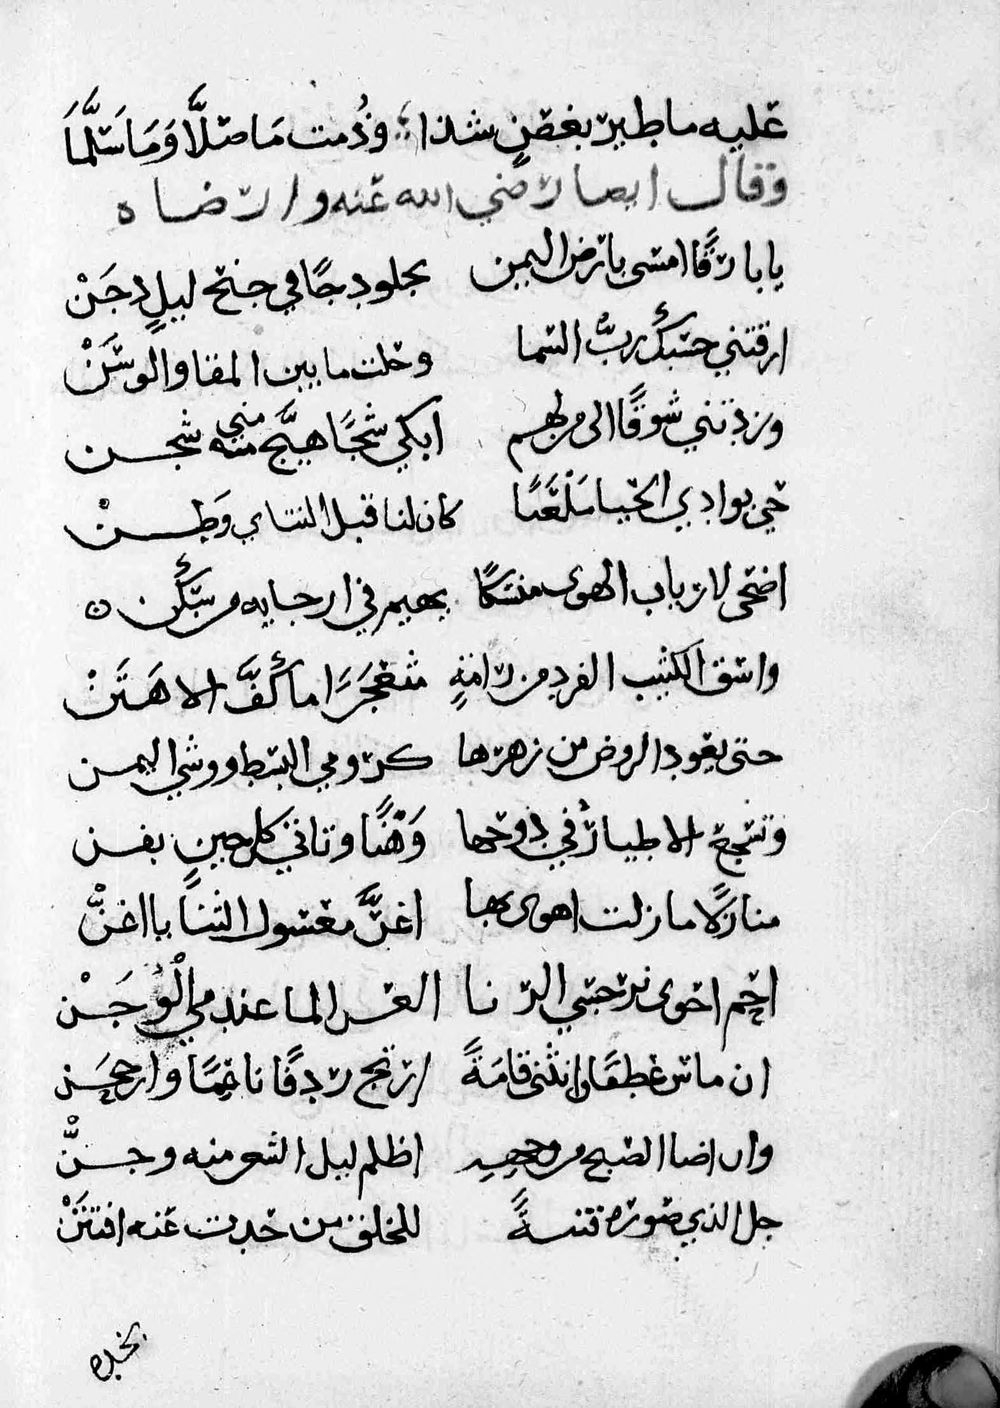 عليه ما طير بغصن شدا ؛ ودُمت مَا صَلَّا وَمَا سَلَّمَا
وقال ايضا رضي الله عنه وارضاه
يا بارقًا امسى بارض اليمن يجلو دجًا في جنح ليلٍ دجَنْ
ارقتني حسبك ربُّ السما وحلت ما بين المقا والوسَنْ
وزدتني شوقًا الى مربهم ابكي شجًا هيَّج مني شجن
حي بوادي الحيا مَلْعَبًا كان لنا قبل التناي وَطن
اضحى لارباب الهوى منسكًا يهيم في ارجايه من سَكَن
واسق الكثيب الفرد من رامةٍ مثعجَرًا ما كفَّ الا هَتَنْ
حتى يعود الروض من زهرها كرومي البسط ووشي اليمن
وتسجع الاطيارُ في دوحها وَهْنًا وتاتي كل حينٍ بفن
منازلًا ما زلت اهوى بها اغنَّ معسول الثنايا اغنّْ
احم احوى نرجسي الرنا العس الما عندمي الْوُجَنْ
ان ماس غطفًا وانثنى قامَةً ارتج ردفًا ناعمًا وارجحَن
وان اضا الصبح من وجهه اظلم ليل الشعر منه وجنّْ
جل الذي صوره فتنةً للخلق من حدت عنه افتتَنْ
بخده